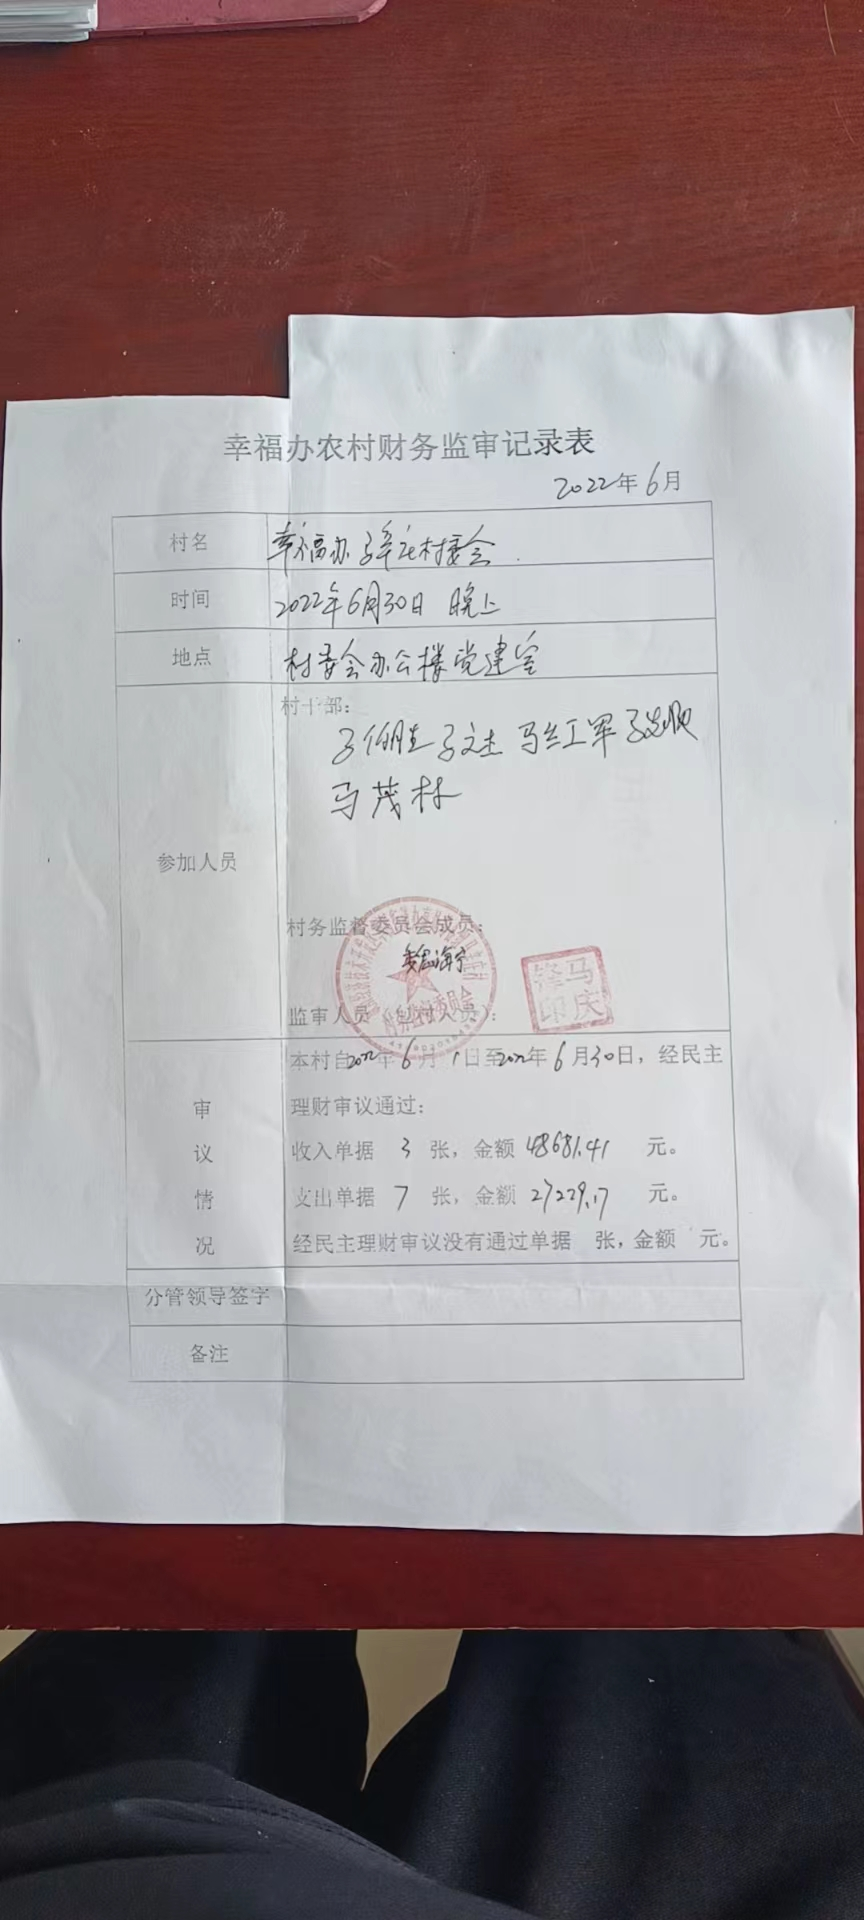 幸福办农村财务监审记录表
2022年6月
村名 幸福办 庄村委会
时间 2022年6月30日 晚上
地点 村委会办公楼党建室
村干部:
文杰 马红军
马茂林
参加人员
村务监督委员会成员:
海宁
马庆锋印
监审人员(包村人员):
本村自2022年6月1日至2022年6月30日,经民主
理财审议通过:
审议情况
收入单据 3 张,金额 48681.41 元。
支出单据 7 张,金额 27229.17 元。
经民主理财审议没有通过单据 张,金额 元。
分管领导签字
备注